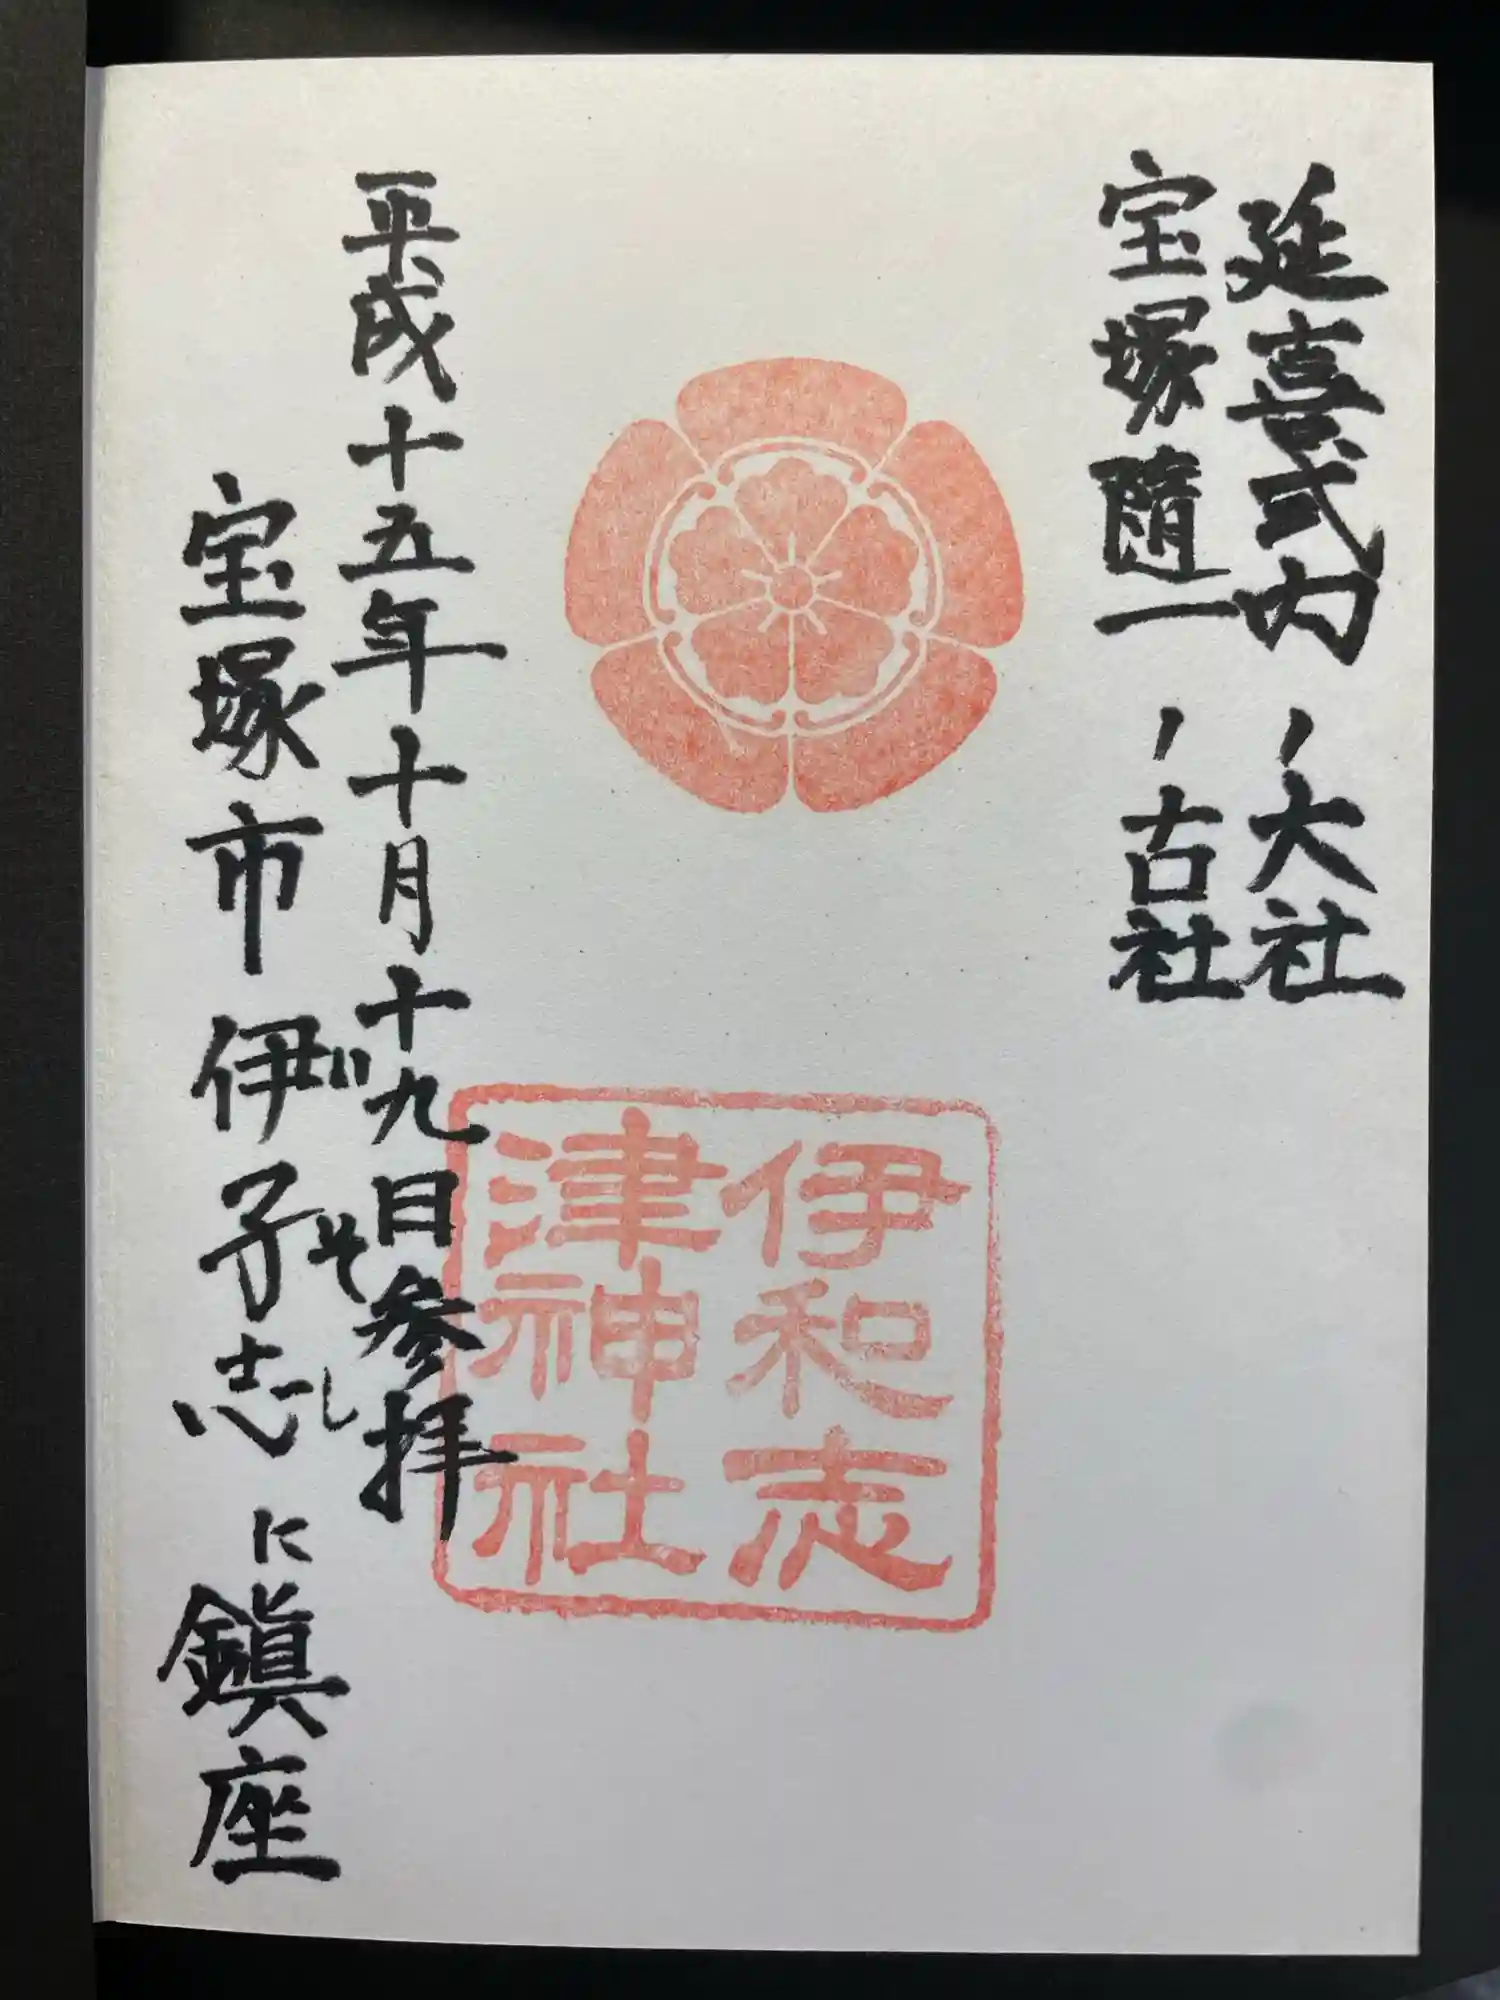 延喜式内ノ大社
宝塚随一ノ古社
伊和志
津神社
平成十五年十月十九日参拝
宝塚市伊子志に鎮座
いそし